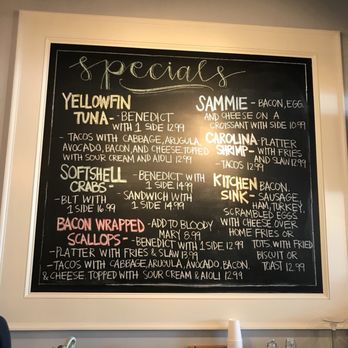 specials
YELLOWFIN
TUNA - BENEDICT
WITH 1 SIDE 12.99
- TACOS WITH CABBAGE, ARUGULA,
AVOCADO, BACON, AND CHEESE TOPPED
WITH SOUR CREAM AND AIOLI 12.99
SOFTSHELL
CRABS - BENEDICT WITH
1 SIDE 14.99
- BLT WITH
1 SIDE 16.99
- SANDWICH WITH
1 SIDE 14.99
BACON WRAPPED
SCALLOPS - ADD TO BLOODY
MARY 8.99
- BENEDICT WITH 1 SIDE 12.99
- PLATTER WITH FRIES & SLAW 13.99
- TACOS WITH CABBAGE, ARUGULA, AVOCADO, BACON,
& CHEESE TOPPED WITH SOUR CREAM & AIOLI 12.99
SAMMIE - BACON, EGG
AND CHEESE ON A
CROISSANT WITH SIDE 10.99
CAROLINA PLATTER
SHRIMP - WITH FRIES
AND SLAW 12.99
- TACOS 12.99
KITCHEN BACON,
SINK - SAUSAGE,
HAM, TURKEY,
SCRAMBLED EGGS
WITH CHEESE OVER
HOME FRIES OR
TOTS WITH FRIED
BISCUIT OR
TOAST 12.99